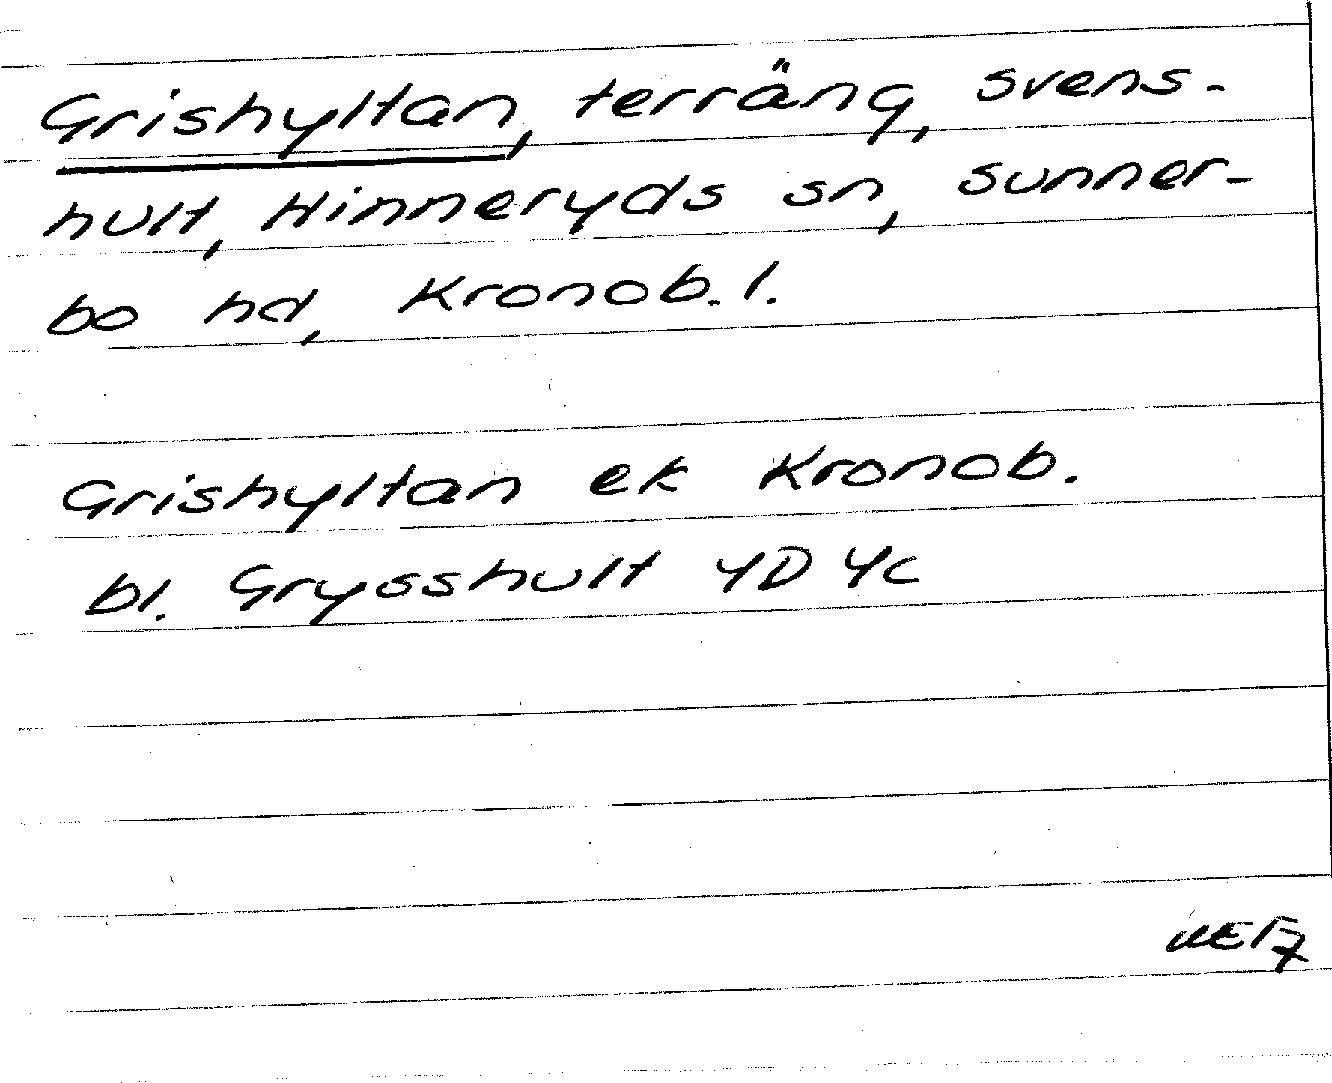 Grishyltan, terräng, Svens-
hult, Hinneryds sn, Sunner-
bo hd, Kronob. l.
Grishyltan ek Kronob.
bl. Grysshult 4D 4c